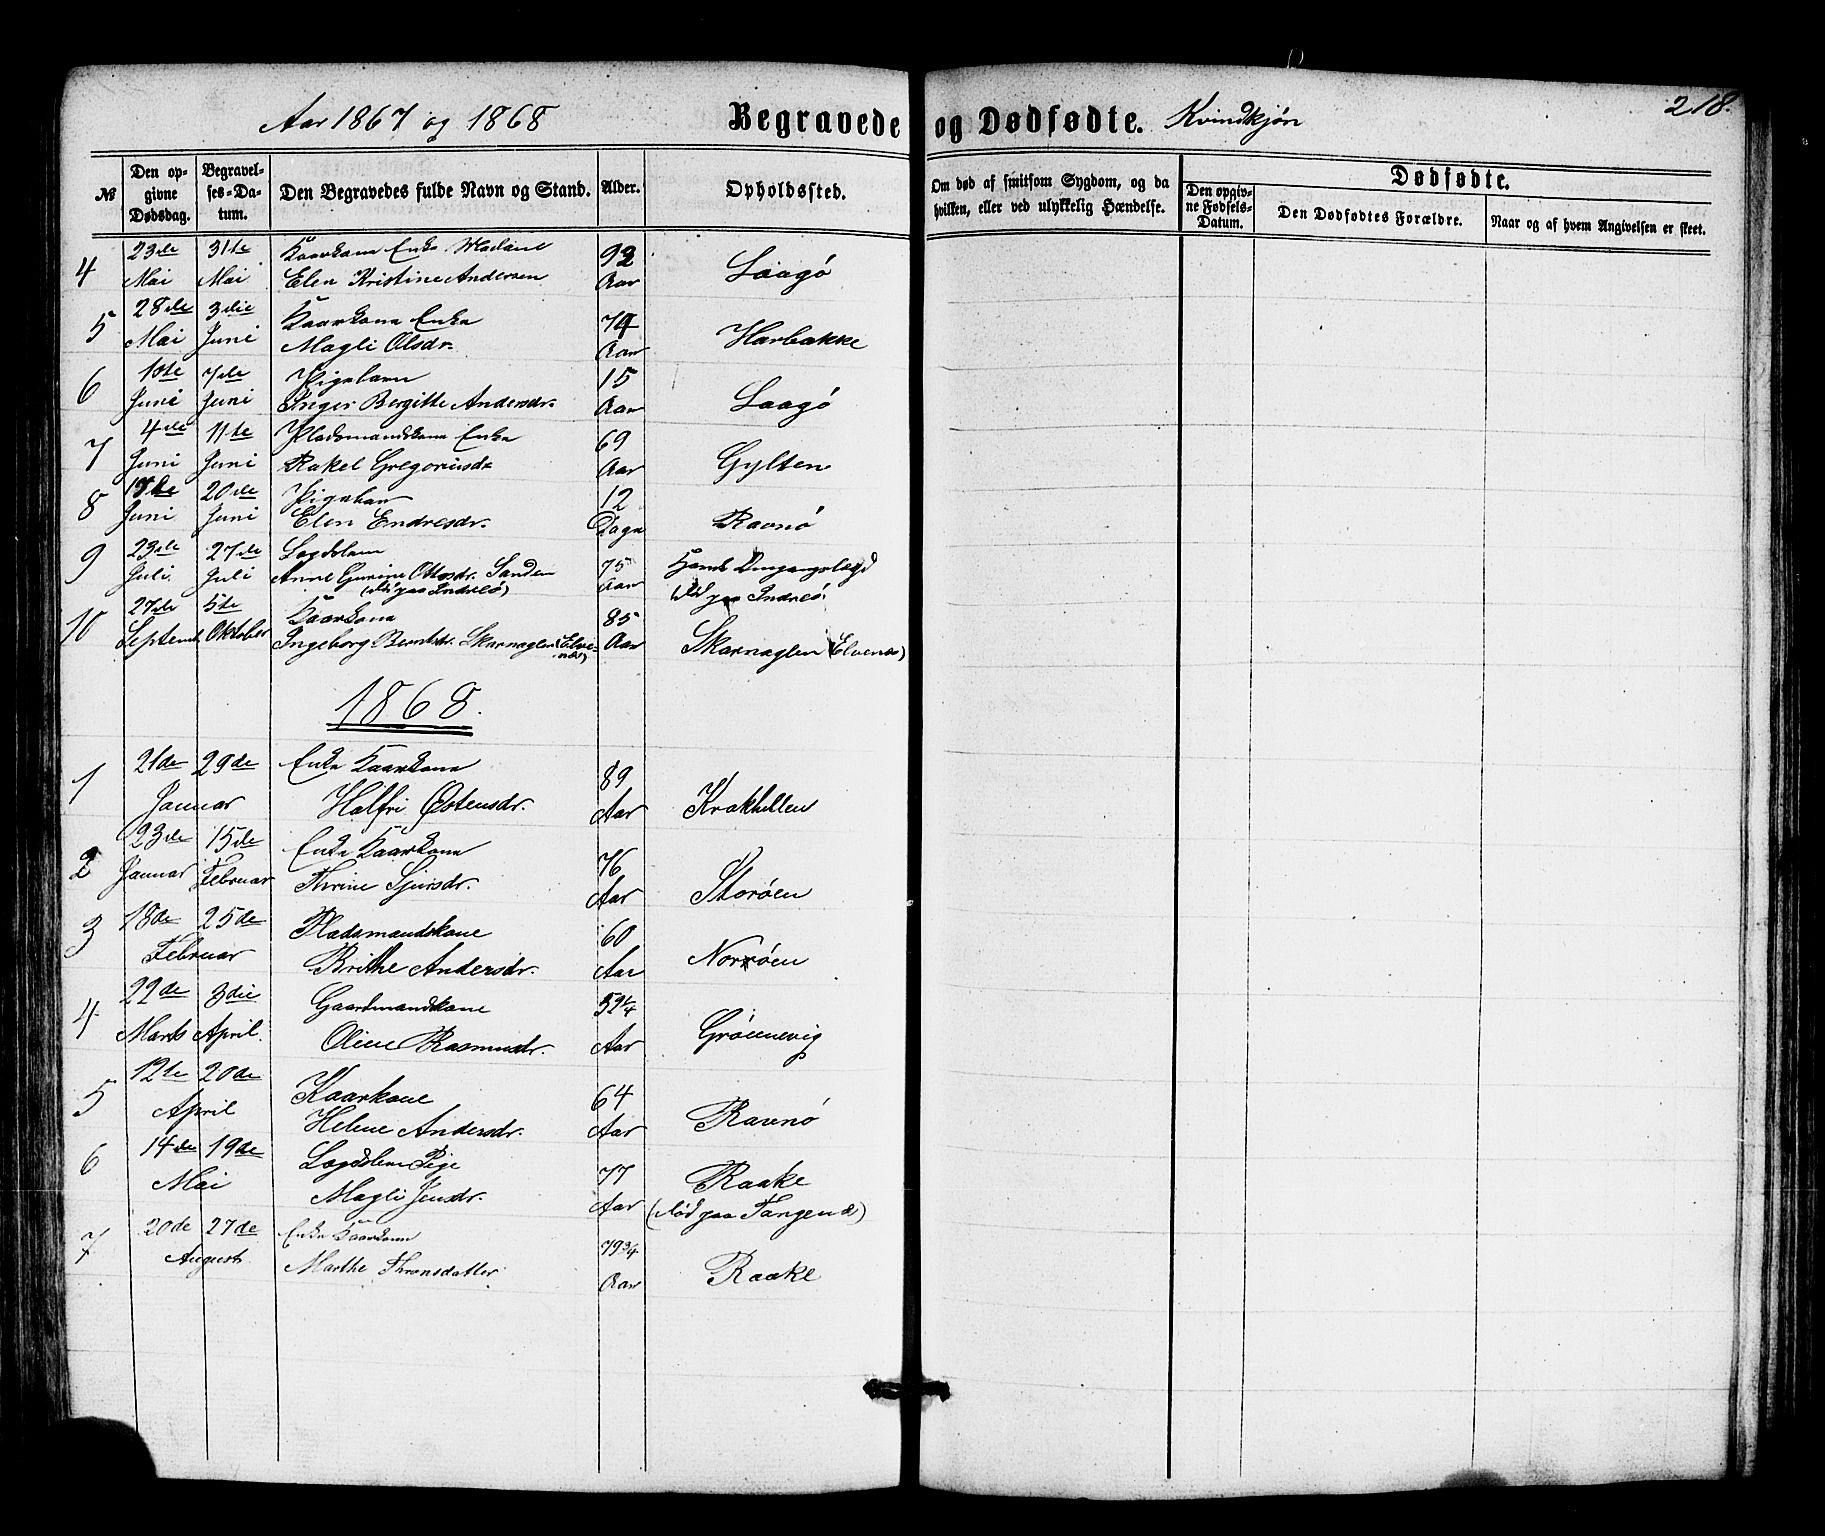 Aar 1867 og 1868 Begravede og Dødfødte. Kvindkjøn 218.
№ Den opgivne Dødsdag. Begravelses-Datum. Den Begravedes fulde Navn og Stand. Alder. Opholdssted. Om død af smitsom Sygdom, og da hvilken, eller ved ulykkelig Hændelse. Dødfødte.
Den opgivne Fødsels-Datum. Den Dødfødtes Forældre. Naar og af hvem Angivelsen er skeet.
4 23de Mai 31te Mai Kaarkone Enke
Elen Kristine Andersen 92 Aar Laagø
5 28de Mai 3die Juni Kaarkone Enke
Magli Olsdr. 74 Aar Harbakke
6 1ste Juni 7de Juni Pigebarn
Inger Bergitte Andersdr. 15 Aar Laagø
7 4de Juni 11te Juni Pladsmandskone Enke
Rakel Gregoriusdr 69 Aar Gylten
8 Juni 20de Juni Pigebarn
Elen Endresdr. 12 Dage Ravnø
9 23de Juli 27de Juli Lægdslem
Anne Gurine Ottosdr. Sanden 75 Aar
(død paa Indreø) død paa Indreø
10 27de Septemb 5te Oktober Kaarkone
Ingeborg Berntdr. Skarnaglen (Elvenæs) 85 Aar Skarnaglen (Elvenæs)
1868.
1 21de 29de Januar Enke Kaarkone
Halfri Østensdr. 89 Aar Krakhellen
2 23de Januar 15de Februar Enke Kaarkone
Thrine Sjursdr. 76 Aar Storøen
3 18de 25de Februar Pladsmandskone
Brithe Andersdr. 60 Aar Norrøen
4 22de Marts 3die April. Gaardmandskone
Oline Rasmusdr. Aar Grønnevig
5 12te 20de April Kaarkone
Helene Andersdr. 64 Aar Ravnø
6 14de 19de Mai Lægdslem Pige
Magli Jensdr. 77 Aar Raake
(død paa Tangenæ)
7 20de 27de August Enke Kaarkone
Marthe Thronsdatter 79 3/4 Aar Raake